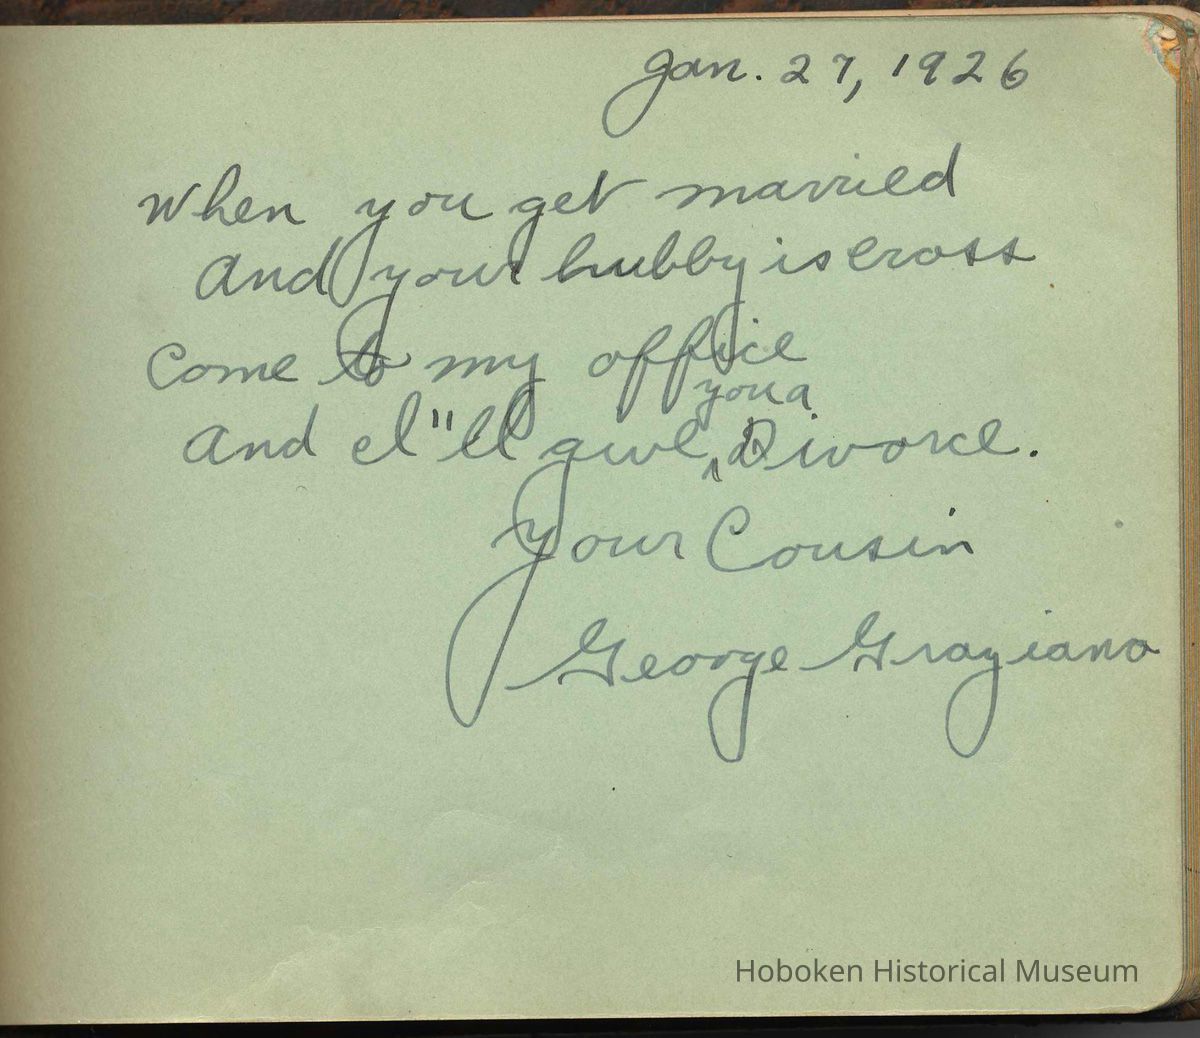 Jan. 27, 1926
When you get married
And your hubby is cross
Come to my office
you a
And I"ll give ^ Divorce.
Your Cousin
George Graziano
Hoboken Historical Museum